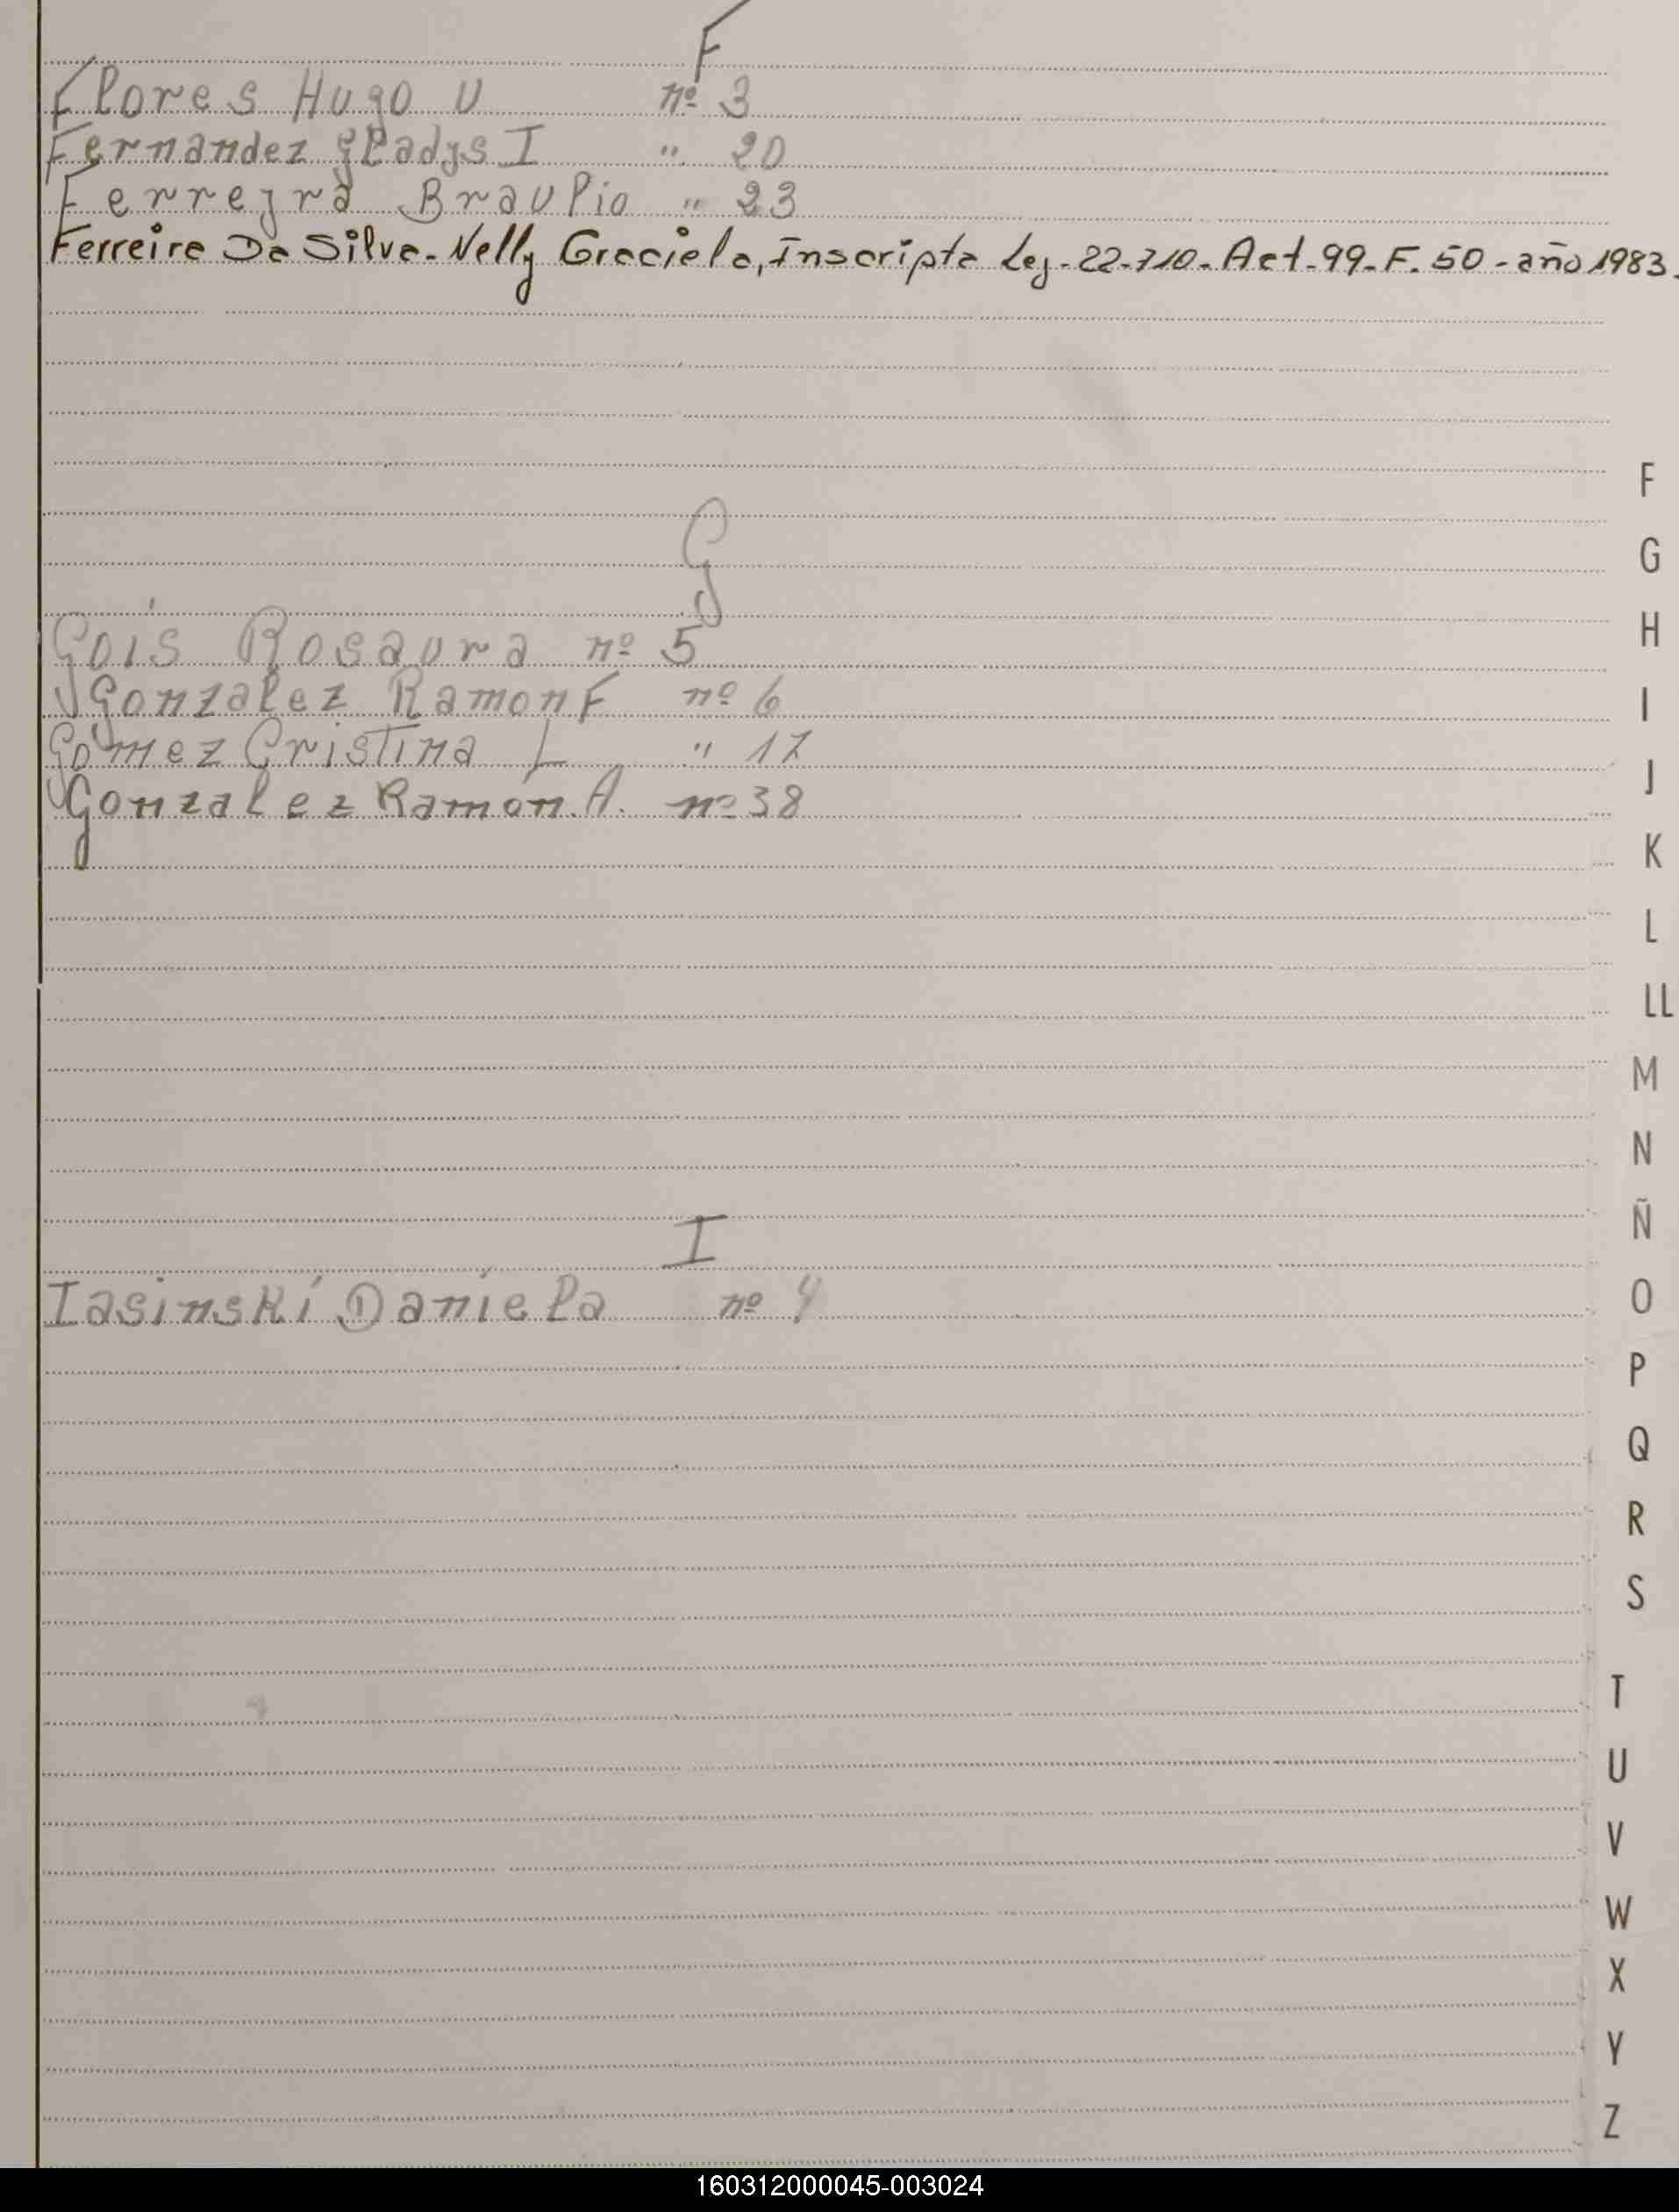 F
Flores Hugo U nº 3
Fernandez Gladys I " 20
Ferreyra Braulio " 23
Ferreira Da Silva - Nelly Graciela, Inscripta Ley - 22-710 - Act - 99 - F. 50 - año 1983.
G
Gois Rosaura nº 5
Gonzalez Ramon F nº 6
Gomez Cristina L " 17
Gonzalez Ramón. A. nº 38
I
Iasinski Daniela nº 4
F
G
H
I
J
K
L
LL
M
N
Ñ
O
P
Q
R
S
T
U
V
W
X
Y
Z
160312000045-003024